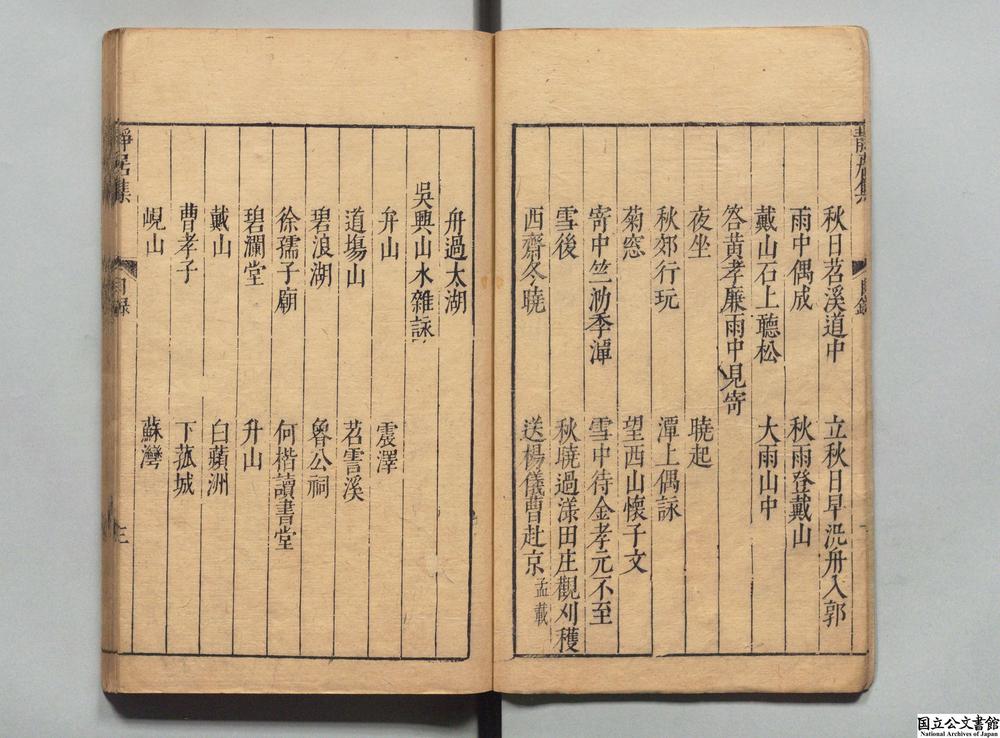 靜居集
目錄
秋日苕溪道中　立秋日早汎舟入郭
雨中偶成　秋雨登戴山
戴山石上聽松　大雨山中
答黃孝廉雨中見寄
夜坐　曉起
秋郊行玩　潭上偶詠
菊窓　望西山懷子文
寄中竺泐季潭　雪中待金孝元不至
雪後　秋曉過漾田庄觀刈穫
西齋冬曉　送楊儀曹赴京孟載
舟過太湖
吳興山水雜詠
弁山　震澤
道塲山　苕霅溪
碧浪湖　魯公祠
徐孺子廟　何楷讀書堂
碧瀾堂　升山
戴山　白蘋洲
曹孝子　下菰城
峴山　蘇灣
靜居集
目録
三
国立公文書館
National Archives of Japan